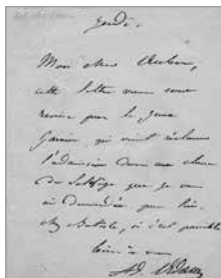 Jeudi.
Mon cher Auber,
cette lettre vous sera
remise par le jeune
Garcin, qui vient réclamer
l'admission dans une classe
de Solfège que je vous
ai demandée pour lui.
chez Batiste, si c'est possible
bien à vous
Ad. Adam